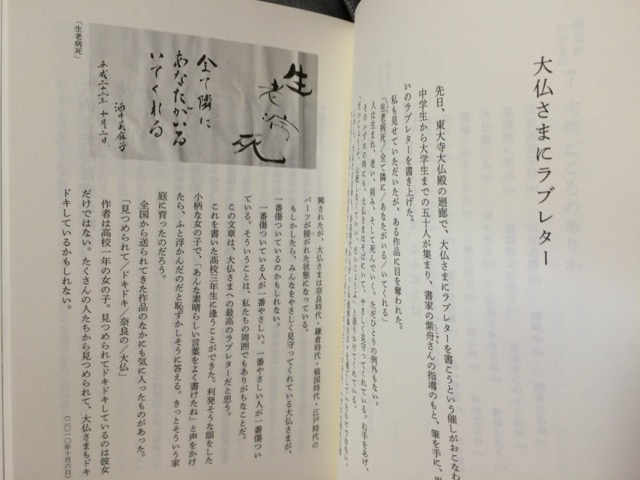 大仏さまにラブレター
先日、東大寺大仏殿の廻廊で、大仏さまにラブレターを書こうという催しがおこなわ
中学生から大学生までの五十人が集まり、書家の紫舟さんの指導のもと、筆を手に、
いのラブレターを書き上げた。
私も見せていただいたが、ある作品に目を奪われた。
「生老病死／全て隣に／あなたがいる／いてくれる」
人は生まれ、老い、病み、そして死んでいく。ただひとりの例外もない。
そのいずれの時にも、大仏さまはそばにいて、やさしく見守ってくれている。右手をあげ、
生老病死
全て隣に
あなたがいる
いてくれる
平成二十二年 十月二日
「生老病死」
興されたが、大仏さまは奈良時代・鎌倉時代・戦国時代・江戸時代の
パーツが接がれた状態になっている。
もしかしたら、みんなをやさしく見守ってくれている大仏さまが、
一番傷ついているのかもしれない。
一番傷ついている人が一番やさしい。一番やさしい人が一番傷つい
ている。そういうことは、私たちの周囲でもありがちなことだ。
この文章は、大仏さまへの最高のラブレターだと思う。
これを書いた高校三年生に逢うことができた。利発そうな眼をした
小柄な女の子で、「あんな素晴らしい言葉をよく書けたね」と声をかけ
たら、ふと浮かんだのだと恥ずかしそうに答える。きっとそういう家
庭に育ったのだろう。
全国から送られてきた作品のなかにも気に入ったものがあった。
「見つめられて／ドキドキ／奈良の／大仏」
作者は高校一年の女の子。見つめられてドキドキしているのは彼女
だけではない。たくさんの人たちから見つめられて、大仏さまもドキ
ドキしているかもしれない。
（二〇一〇年十月六日）